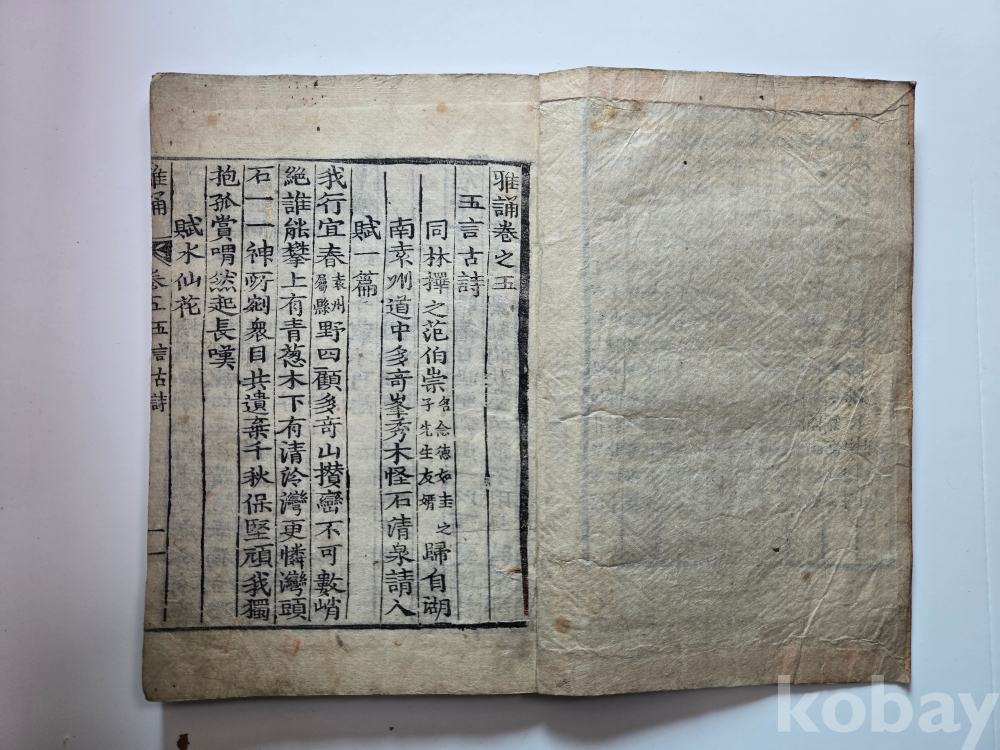 雅誦卷之五
五言古詩
同林擇之范伯崇名念德如圭之子先生友婿歸自湖
南袁州道中多奇峯秀木怪石清泉請人
賦一篇
我行宜春袁州屬縣野四顧多奇山攢巒不可數峭
絶誰能攀上有青葱木下有清泠灣更憐灣頭
石一一神所剜衆目共遺棄千秋保堅頑我獨
抱孤賞喟然起長嘆
賦水仙花
雅誦 卷五 五言古詩 一
kobay